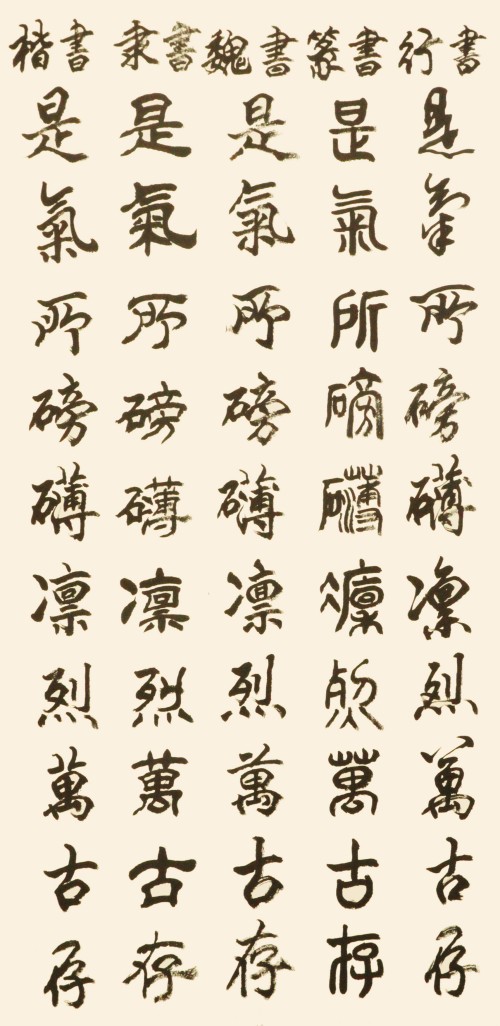 楷書 隶書 魏書 篆書 行書
是 是 是 是 是
氣 氣 氣 氣 氣
所 所 所 所 所
磅 磅 磅 磅 磅
礴 礴 礴 礴 礴
凛 凛 凛 凛 凛
烈 烈 烈 烈 烈
萬 萬 萬 萬 萬
古 古 古 古 古
存 存 存 存 存